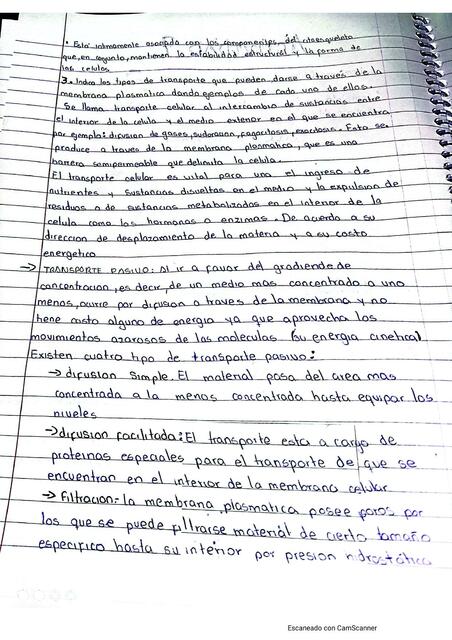 • Está intimamente asociada con los componentes del citoesqueleto
que, en conjunto, mantienen la estabilidad estructural y la forma de
las celulas
3. Indica los tipos de transporte que pueden darse a través de la
membrana plasmatica dando ejemplos de cada uno de ellos.
Se llama transporte celular al intercambio de sustancias entre
el interior de la celula y el medio exterior en el que se encuentra
por ejemplo: difusion de gases, sudoracion, fagocitosis, exocitosis. Esto se
produce a traves de la membrana plasmatica, que es una
barrera semipermeable que delimita la celula.
El transporte celular es vital para una el ingreso de
nutrientes y sustancias disueltas en el medio y la expulsion de
residuos o de sustancias metabolizadas en el interior de la
celula como las hormonas o enzimas. De acuerdo a su
direccion de desplazamiento de la materia y a su costo
energetico
→ TRANSPORTE PASIVO: Al ir a favor del gradiende de
concentracion, es decir, de un medio mas concentrado a uno
menos, ocurre por difusion a traves de la membrana y no
tiene costo alguno de energia ya que aprovecha los
movimientos azarosos de las moleculas (su energia cinetica)
Existen cuatro tipo de transporte pasivo:
→ difusion simple. El material pasa del area mas
concentrada a la menos concentrada hasta equipar los
niveles
→ difusion facilitada: El transporte esta a cargo de
proteinas especiales para el transporte de que se
encuentran en el interior de la membrana celular
→ Filtracion: la membrana plasmatica posee poros por
los que se puede filtrarse material de cierto tamaño
especifico hasta su interior por presion hidrostática
Escaneado con CamScanner